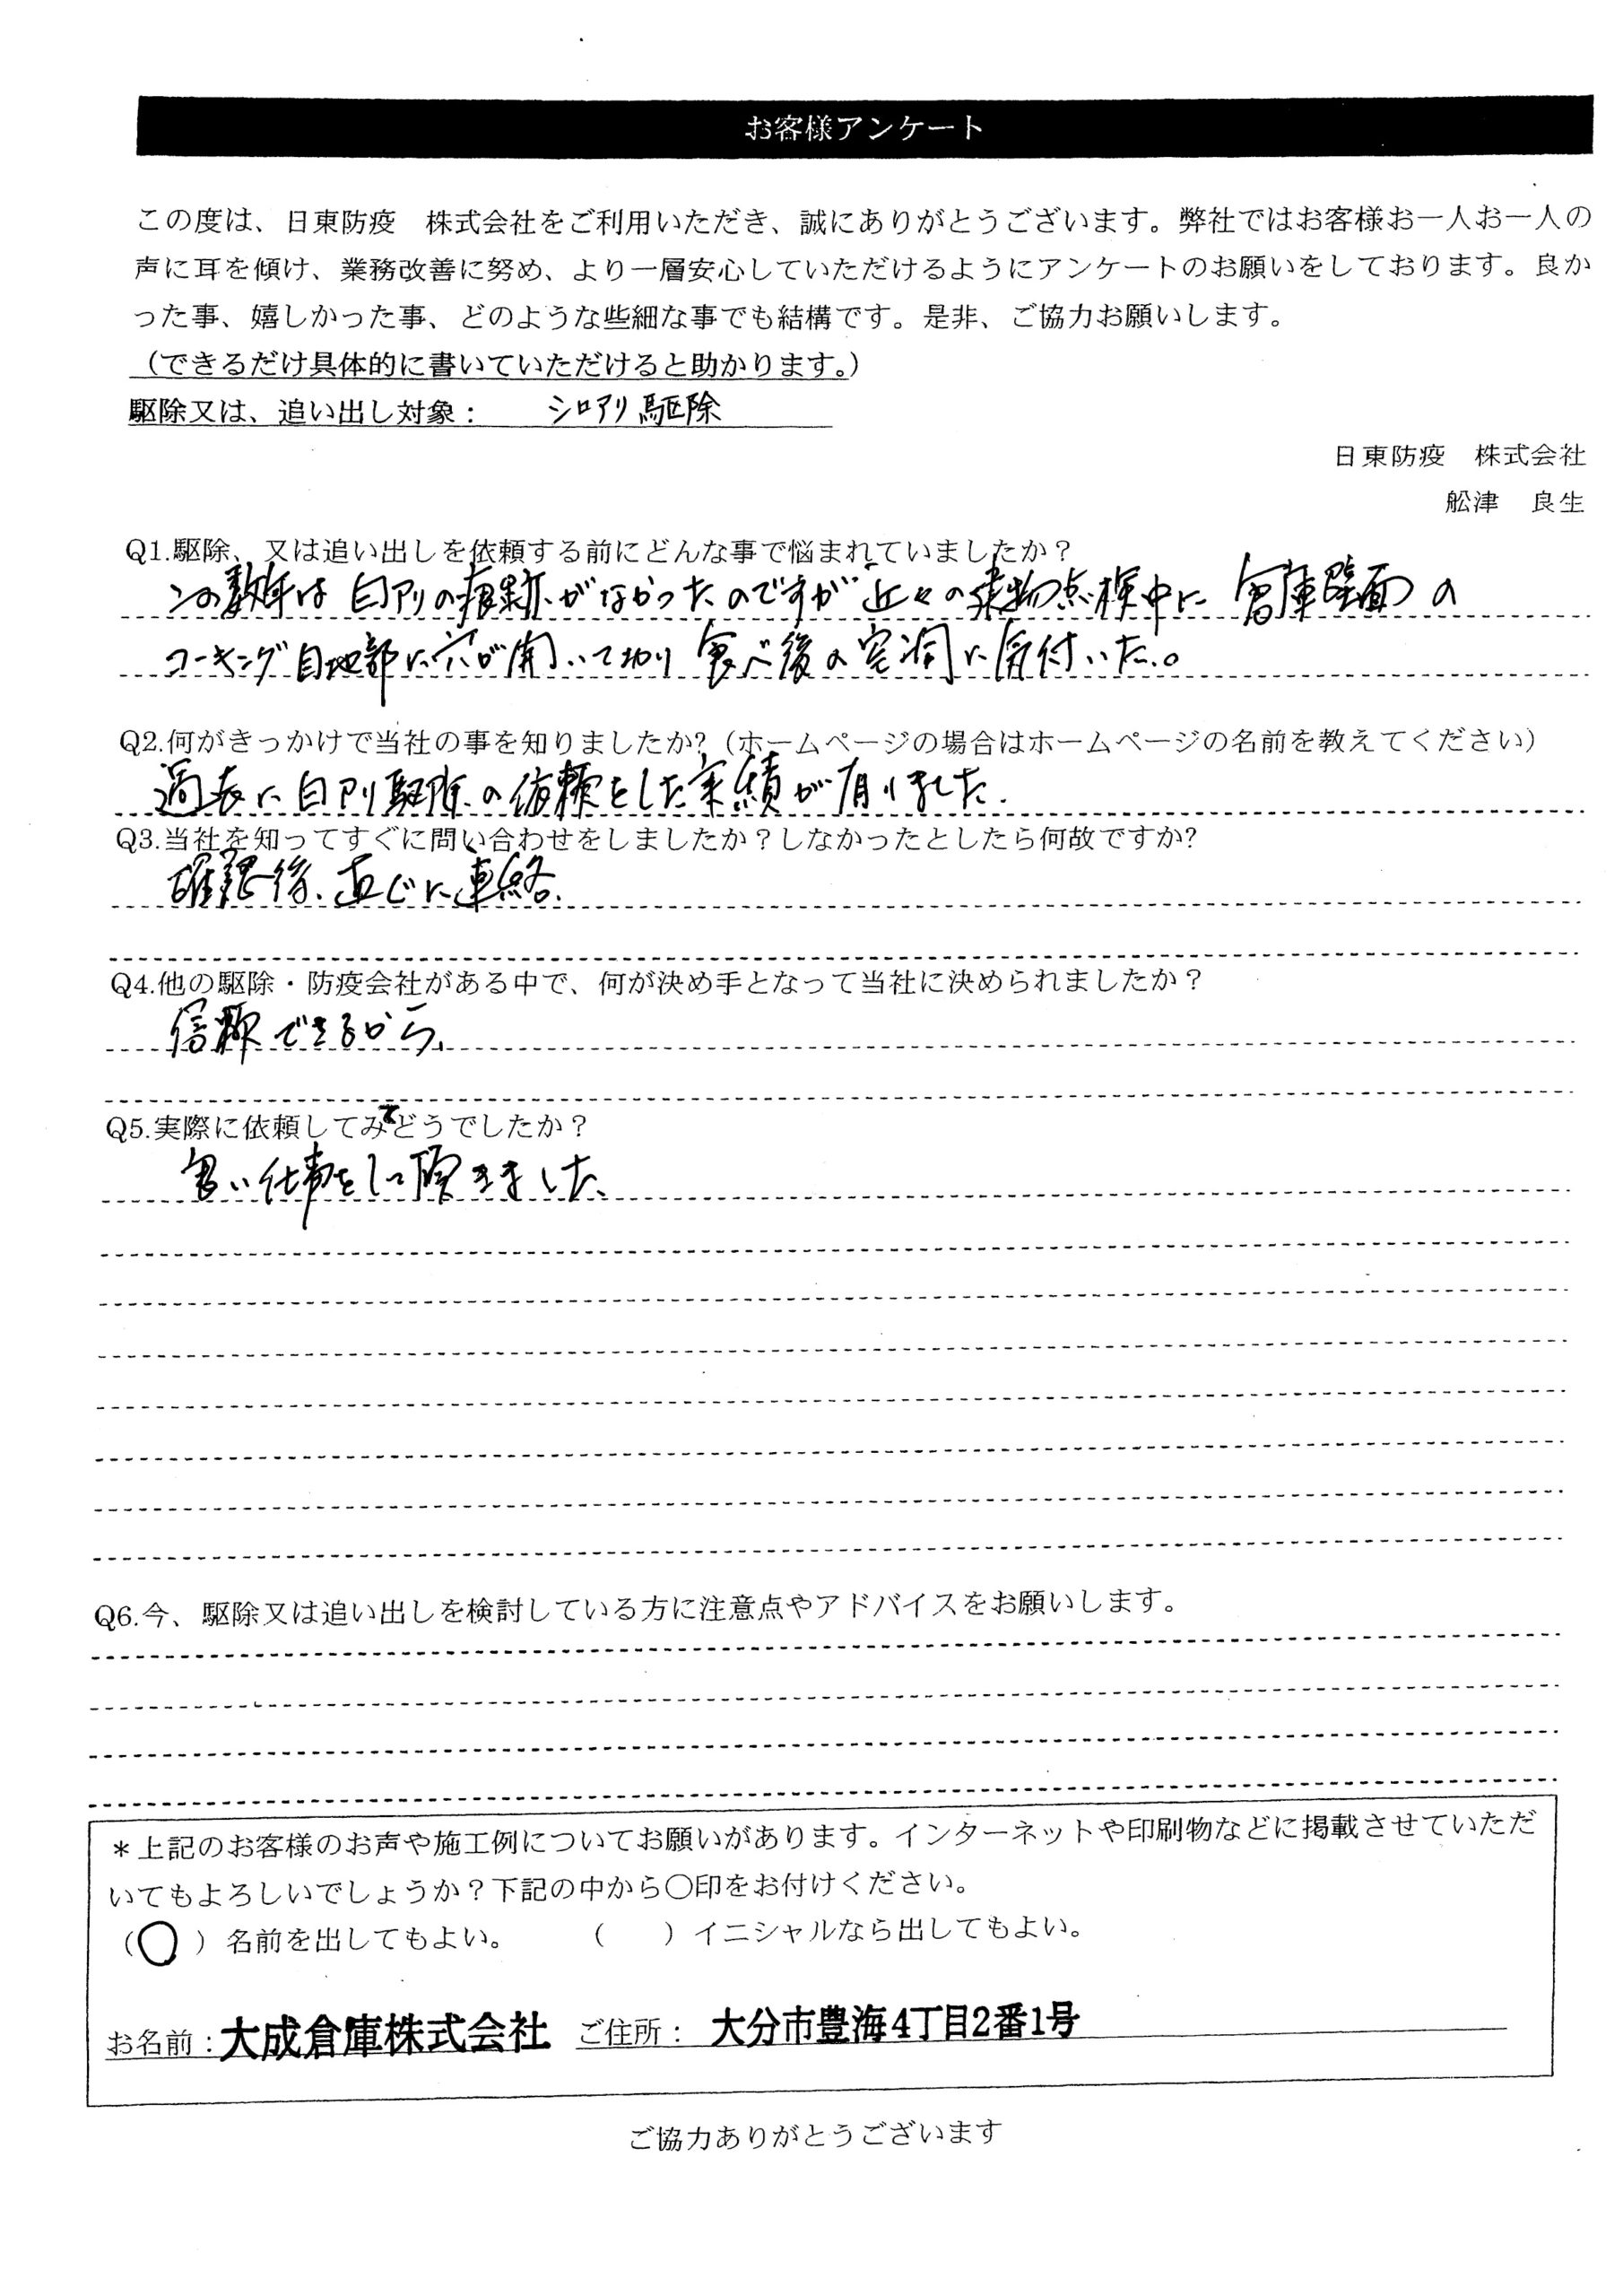 お客様アンケート
この度は、日東防疫　株式会社をご利用いただき、誠にありがとうございます。弊社ではお客様お一人お一人の
声に耳を傾け、業務改善に努め、より一層安心していただけるようにアンケートのお願いをしております。良か
った事、嬉しかった事、どのような些細な事でも結構です。是非、ご協力お願いします。
（できるだけ具体的に書いていただけると助かります。）
駆除又は、追い出し対象：　シロアリ駆除
日東防疫　株式会社
舩津　良生
Q1.駆除、又は追い出しを依頼する前にどんな事で悩まれていましたか？
この数年は白アリの痕跡がなかったのですが近々の建物点検中に倉庫壁面の
コーキング目地部に穴が開いており食べ後の空洞に気付いた。
Q2.何がきっかけで当社の事を知りましたか?（ホームページの場合はホームページの名前を教えてください）
過去に白アリ駆除の依頼をした実績が有りました.
Q3.当社を知ってすぐに問い合わせをしましたか？しなかったとしたら何故ですか?
確認後、直ぐに連絡.
Q4.他の駆除・防疫会社がある中で、何が決め手となって当社に決められましたか？
信頼できるから、
Q5.実際に依頼してみてどうでしたか？
良い仕事をして頂きました、
Q6.今、駆除又は追い出しを検討している方に注意点やアドバイスをお願いします。
＊上記のお客様のお声や施工例についてお願いがあります。インターネットや印刷物などに掲載させていただ
いてもよろしいでしょうか？下記の中から〇印をお付けください。
（〇）名前を出してもよい。　（　）イニシャルなら出してもよい。
お名前：大成倉庫株式会社　ご住所：大分市豊海4丁目2番1号
ご協力ありがとうございます